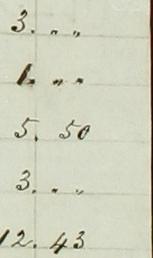 3. „ „
1. „ „
5. 50
3. „ „
12. 43